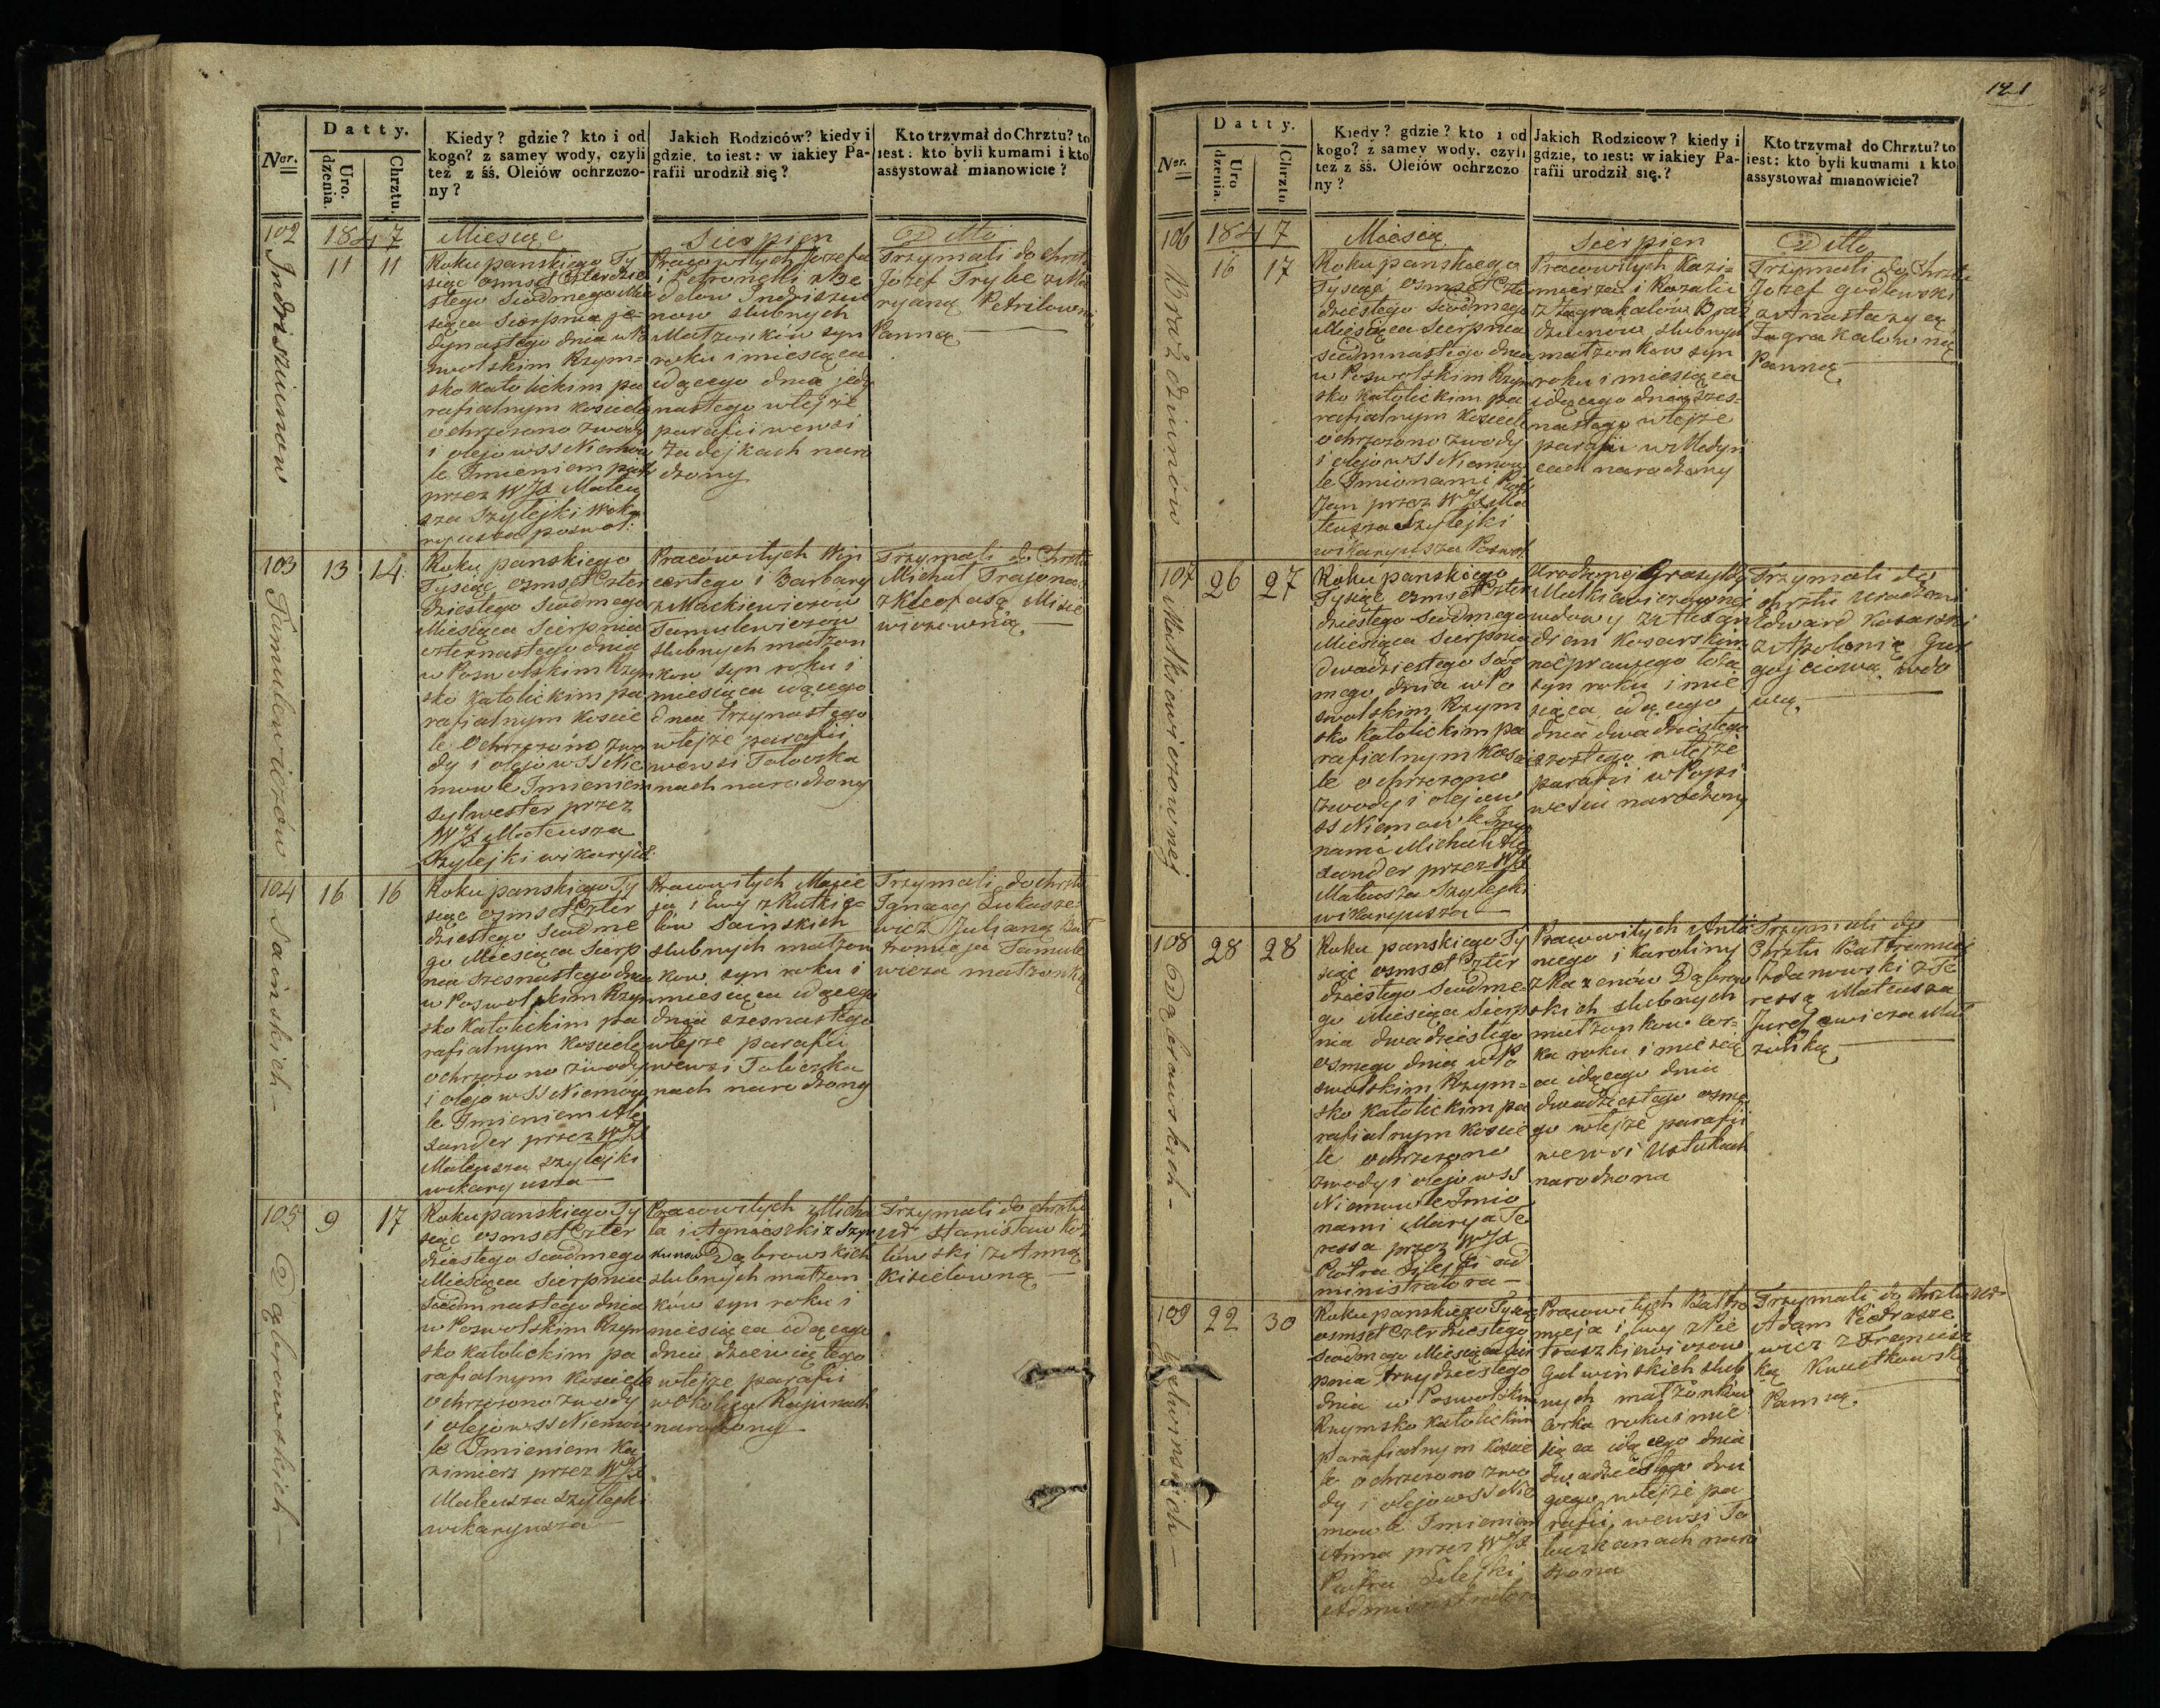 Datty.
Ner.
Uro.
dzenia.
Chrztu.
Kiedy? gdzie? kto i od
kogo? z samey wody, czyli
też z śś. Oleiów ochrzczo-
ny?
Jakich Rodziców? kiedy i
gdzie, to iest: w iakiey Pa-
rafii urodził się?
Kto trzymał do Chrztu? to
iest: kto byli kumami i kto
assystował mianowicie?
102
1847
Miesiąc
Sierpien
Ditto
11 11
Indriszunow
Roku panskiego Ty
siąc osmset Czterdzie
stego Siodmego Mie
siąca Sierpnia je-
dynastego dnia w Po
swolskim Rzym=
sko katolickim pa
rafialnym kosciele
ochrzczono z wody
i olejow SS Niemow
le Imieniem
przez WJX Mateu
sza Szylejki Wika
ryusza poswol:
Pracowitych Jozefa
i Petroneli z
Indriszu
now slubnych
Małżonków syn
roku i miesiąca
idącego dnia jedy
nastego w tejże
parafii we wsi
Zadejkach naro
dzony
Trzymali do chrztu
Jozef Trybe z Ma
ryaną Petrilowną
Panną
103
13 14
Tamulewiczów
Roku panskiego
Tysiąc osmset Czter
dziestego Siodmego
Miesiąca Sierpnia
czternastego dnia
w Poswolskim Rzym
sko katolickim pa
rafialnym kosciele
le Ochrzczono z wo
dy i olejow SS Nie
mowle Imieniem
Sylwester przez
WJX Mateusza
Szylejki wikaryu:
Pracowitych Win
centego i Barbary
z Mackiewiczow
Tamulewiczow
slubnych małżon
kow syn roku i
miesiąca idącego
dnia trzynastego
w tejże parafii
we wsi Toloczka
nach narodzony
Trzymali do Chrztu
Michał Trajonas
z Kleofasą Misie
wiczowną
104
16 16
Sainskich
Roku panskiego Ty
siąc osmset Czter
dziestego Siodme
go Miesiąca Sierp
nia szesnastego dnia
w Poswolskim Rzym
sko katolickim pa
rafialnym kosciele
ochrzczono z wody
i olejow SS Niemow
le Imieniem Ale
xander przez WJX
Mateusza Szylejki
wikaryusza
Pracowitych Macie
ja i Ewy z Rutkie
low Sainskich
slubnych małżon
kow syn roku i
miesiąca idącego
dnia szesnastego
w tejże parafii
we wsi Toloczka
nach narodzony
Trzymali do chrztu
Ignacy Łukasze
wicz z Julianą Bał
tromieja Tamule
wicza małżonką
105
9 17
Dąbrowskich
Roku panskiego Ty
siąc osmset Czter
dziestego Siodmego
Miesiąca Sierpnia
siedmnastego dnia
w Poswolskim Rzym
sko katolickim pa
rafialnym kosciele
ochrzczono z wody
i olejow SS Niemow
le Imieniem Ka
zimierz przez WJX
Mateusza Szylejki
wikaryusza
Pracowitych Micha
ła i Agnieszki z Szym
kunow Dąbrowskich
slubnych małżon
ków syn roku i
miesiąca idącego
dnia dziewiątego
w tejże parafii
w okolicy Rajunach
narodzony
Trzymali do chrztu
Ur. Stanisław Koz
łowski z Anną
Kisielowną
121
Datty.
Ner.
Uro
dzenia.
Chrztu
Kiedy? gdzie? kto i od
kogo? z samey wody, czyli
też z śś. Oleiów ochrzczo
ny?
Jakich Rodzicow? kiedy i
gdzie, to iest: w iakiey Pa-
rafii urodził się.?
Kto trzymał do Chrztu? to
iest: kto byli kumami i kto
assystował mianowicie?
106
1847
Miesiąc
Sierpien
Ditto
16 17
Braździunów
Roku panskiego
Tysiąc osmset Czter
dziestego Siodmego
Miesiąca Sierpnia
siedmnastego dnia
w Poswolskim Rzym
sko katolickim pa
rafialnym kosciele
ochrzczono z wody
i olejow SS Niemow
le Imionami
Jan przez WJX Ma
teusza Szylejki
wikaryusza Poswol.
Pracowitych Kazi=
mierza i Rozalii
z Zagrakalów Braź
dziunow slubnych
małżonkow syn
roku i miesiąca
idącego dnia szes=
nastego w tejże
parafii w Medyn
cach narodzony
Trzymali do Chrztu
Jozef Godlewski
z Anastazyą
Zagrakalowną
Panną
107
26 27
Matkiewiczownej
Roku panskiego
Tysiąc osmset Czter
dziestego Siodmego
Miesiąca Sierpnia
dwadziestego siod
mego dnia w Po
swolskim Rzym
sko katolickim pa
rafialnym kosciel
le ochrzczono
z wody i olejow
SS Niemowle Imio
nami Michał Ale
xander przez WJX
Mateusza Szylejki
wikaryusza
Urodzonej Grasyldy
Matkiewiczownej
wdowy z Alexan
drem Kosarskim
nieprawego łoża
syn roku i mie
siąca idącego
dnia dwadziestego
szostego w tejże
parafii w Popi
weśiu narodzony
Trzymali do
chrztu Urodzeni
Edward Kosarski
z Apolonią Gur
gojciową wdo
wą
108
28 28
Dąbrowskich
Roku panskiego Ty
siąc osmset Czter
dziestego Siodme
go Miesiąca Sierp
nia dwadziestego
osmego dnia w Po
swolskim Rzym=
sko katolickim pa
rafialnym koscie
le ochrzczono
z wody i olejow SS
Niemowle Imio
nami Marya Te
ressa przez WJX
Piotra Lilejki ad
ministratora
Pracowitych Anto
niego i Karoliny
z Kazenów Dąbrow
skich slubnych
małżonkow cor=
ka roku i miesią
ca idącego dnia
dwadziestego osme
go w tejże parafii
we wsi Ustukach
narodzona
Trzymali do
Chrztu Bałtromiej
Zdanowski z Te
ressą Mateusza
Jurgiewicza Mał
żonką
109
22 30
Gulwinskich
Roku panskiego Tysiąc
osmset Czterdziestego
Siodmego Miesiąca Sier
pnia trzydziestego
dnia w Poswolskim
Rzymsko katolickim
Parafialnym koscie
le ochrzczono z wo
dy i olejow SS Nie
mowle Imieniem
Anna przez WJX
Piotra Lilejki
Administratora
Pracowitych Bałtro
mieja i Ewy z Pie
traszkiewiczow
Gulwinskich slub
nych małżonków
corka roku i mie
siąca idącego dnia
dwadziestego dru
giego w tejże pa
rafii we wsi To
loczkanach naro
dzona
Trzymali do chrztu Ur.
Adam Pietrasze
wicz z Francisz
ką Kwiatkowską
Panną